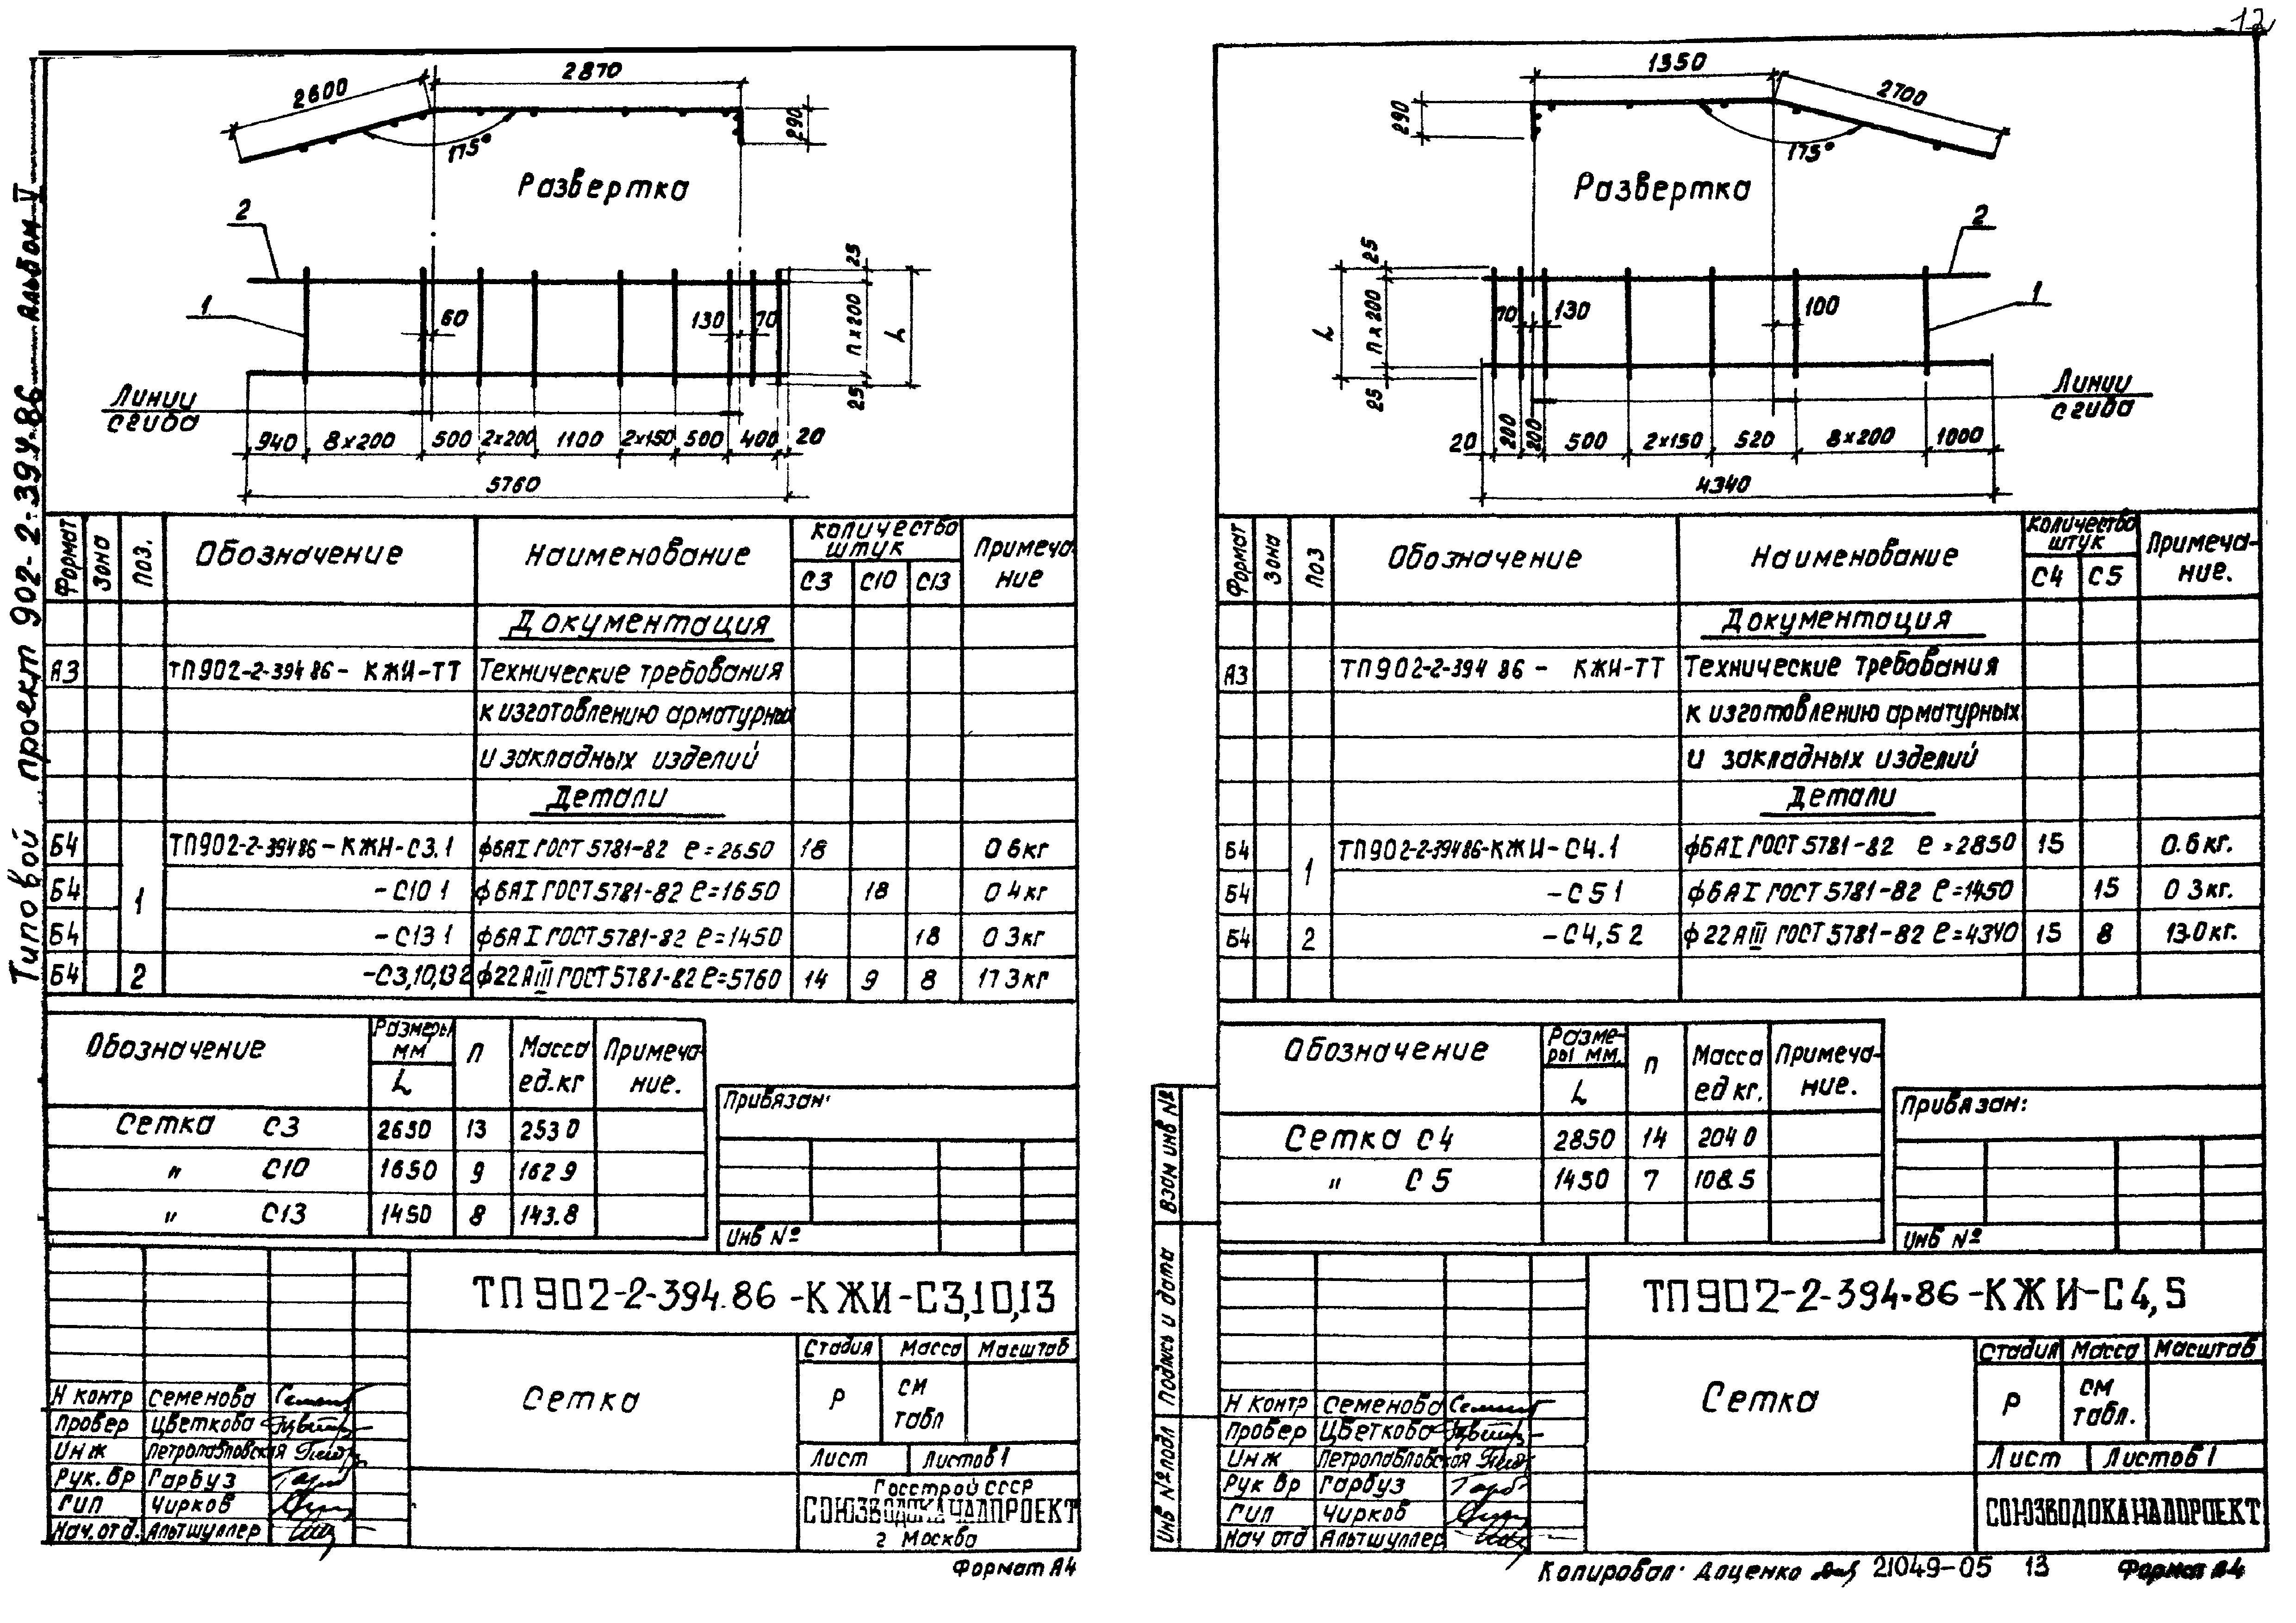 12
Типовой проект 902-2-394.86 Альбом V
2600
2870
290
175°
Развертка
2
1
60
130
70
25
n x 200
25
L
Линии
сгиба
940
8x200
500
2x200
1100
2x150
500
400
20
5760
Формат
Зона
Поз.
Обозначение
Наименование
Количество
штук
С3
С10
С13
Примеча-
ние
Документация
А3 ТП902-2-394 86- КЖИ-ТТ Технические требования
к изготовлению арматурных
и закладных изделий
Детали
Б4 ТП902-2-39486-КЖИ-С3.1 ф6АI ГОСТ 5781-82 ℓ=2650 18 0 6кг
Б4 1 -С10 1 ф6АI ГОСТ 5781-82 ℓ=1650 18 0 4кг
Б4 -С13 1 ф6АI ГОСТ 5781-82 ℓ=1450 18 0 3кг
Б4 2 -С3,10,13 2 ф22АIII ГОСТ 5781-82 ℓ=5760 14 9 8 17 3кг
Обозначение
Размеры
мм
L
n
Масса
ед.кг
Примеча-
ние.
Сетка С3 2650 13 253 0
" С10 1650 9 162 9
" С13 1450 8 143.8
Привязан:
Инв №
ТП902-2-394.86-КЖИ-С3,10,13
Сетка
Стадия Масса Масштаб
Р см
табл
Лист Листов 1
Госстрой СССР
СОЮЗВОДОКАНАЛПРОЕКТ
г Москва
Н контр Семенова
Провер Цветкова
Инж Петропавловская
Рук. бр Гарбуз
ГИП Чирков
Нач.отд. Альтшуллер
Формат А4
1350
2700
290
175°
Развертка
2
1
25
n x 200
25
L
70
130
100
Линии
сгиба
20
200
200
500
2x150
520
8x200
1000
4340
Формат
Зона
Поз
Обозначение
Наименование
Количество
штук
С4
С5
Примеча-
ние.
Документация
А3 ТП902-2-394 86 - КЖИ-ТТ Технические требования
к изготовлению арматурных
и закладных изделий
Детали
Б4 ТП902-2-39486-КЖИ-С4.1 ф6АI ГОСТ 5781-82 ℓ=2850 15 0.6кг.
Б4 1 -С 5 1 ф6АI ГОСТ 5781-82 ℓ=1450 15 0 3кг.
Б4 2 -С4,5 2 ф22АIII ГОСТ 5781-82 ℓ=4340 15 8 13.0кг.
Обозначение
Разме-
ры мм.
L
n
Масса
ед кг.
Примеча-
ние.
Сетка С4 2850 14 204 0
" С5 1450 7 108.5
Привязан:
Инв №
Взам инв №
Подпись и дата
Инв № подл
ТП902-2-394.86-КЖИ-С4,5
Сетка
Стадия Масса Масштаб
Р см
табл.
Лист Листов 1
СОЮЗВОДОКАНАЛПРОЕКТ
Н контр Семенова
Провер Цветкова
Инж Петропавловская
Рук бр Гарбуз
ГИП Чирков
Нач отд Альтшуллер
Копировал: Даценко 21049-05 13 Формат А4